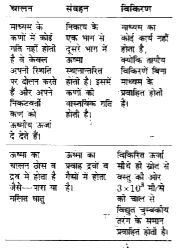 चालन संवहन विकिरण
माध्यम के निकाय के माध्यम का
कणों में कोई एक भाग से कोई कार्य नहीं
गति नहीं होती दूसरे भाग में होता है,
है वे केवल ऊष्मा क्योंकि तापीय
अपनी स्थिति स्थानान्तरित विकिरण बिना
पर दोलन करते होती है। इसमें माध्यम के
हैं और अपने कणों की प्रवाहित होती
निकटवर्ती वास्तविक गति है।
कण को होती है।
ऊष्मीय ऊर्जा
दे देते हैं।
ऊष्मा का ऊष्मा का विकिरित ऊर्जा
चालन ठोस व प्रवाह द्रवों व सीधे ही स्रोत से
द्रव में होता है गैसों में होता वस्तु की ओर
जैसे—पारा या है। 3×10⁸ मी/से
गलित धातु की चाल से
विद्युत चुम्बकीय
तरंग के समान
प्रवाहित होती है।